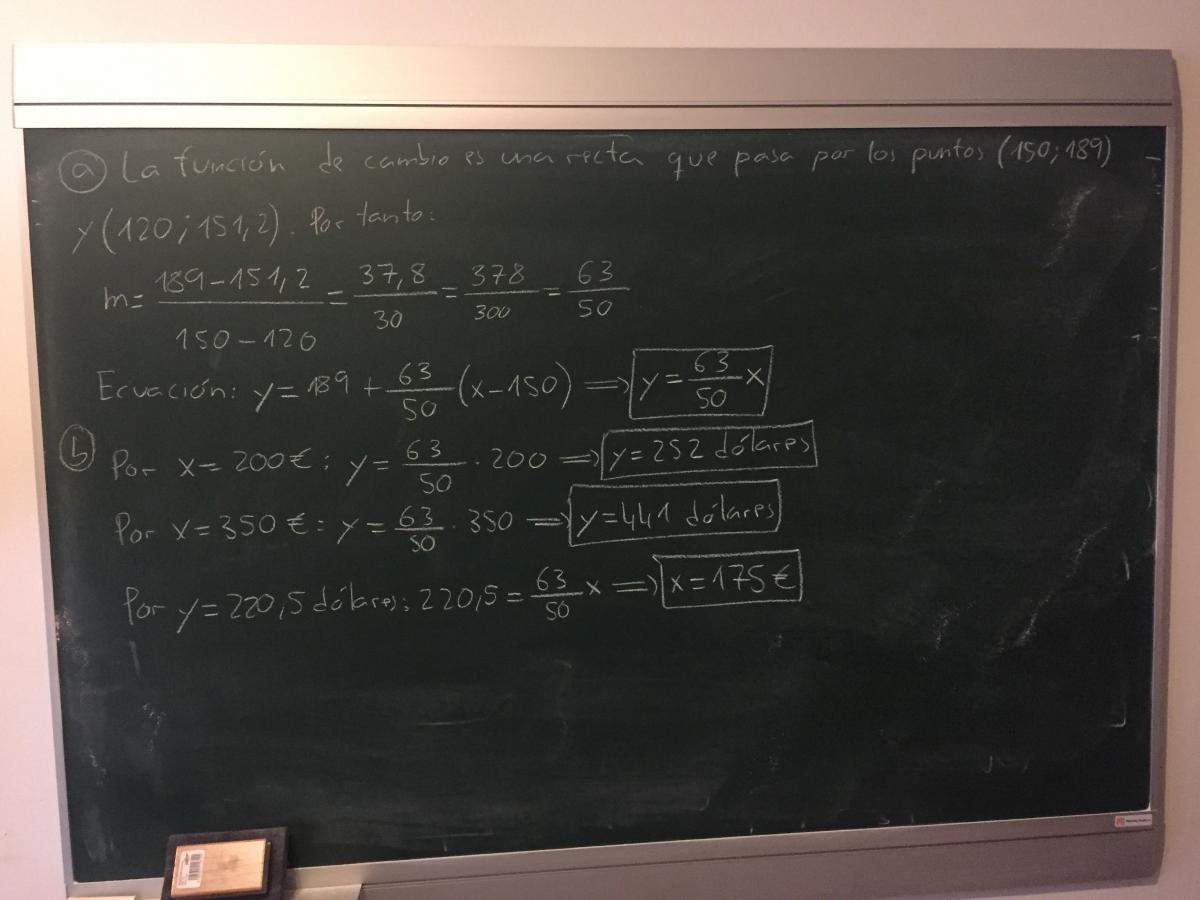 ⓐ La función de cambio es una recta que pasa por los puntos (150; 189)
y (120; 151,2). Por tanto:
m = (189 – 151,2)/(150 – 120) = 37,8/30 = 378/300 = 63/50
Ecuación: y = 189 + 63/50 (x – 150) ⟹ y = 63/50 x
ⓑ Por x = 200 €: y = 63/50 · 200 ⟹ y = 252 dólares
Por x = 350 €: y = 63/50 · 350 ⟹ y = 441 dólares
Por y = 220,5 dólares: 220,5 = 63/50 x ⟹ x = 175 €